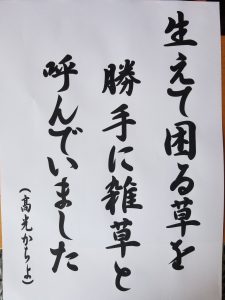 生えて困る草を
勝手に雑草と
呼んでいました
(高光かちよ)